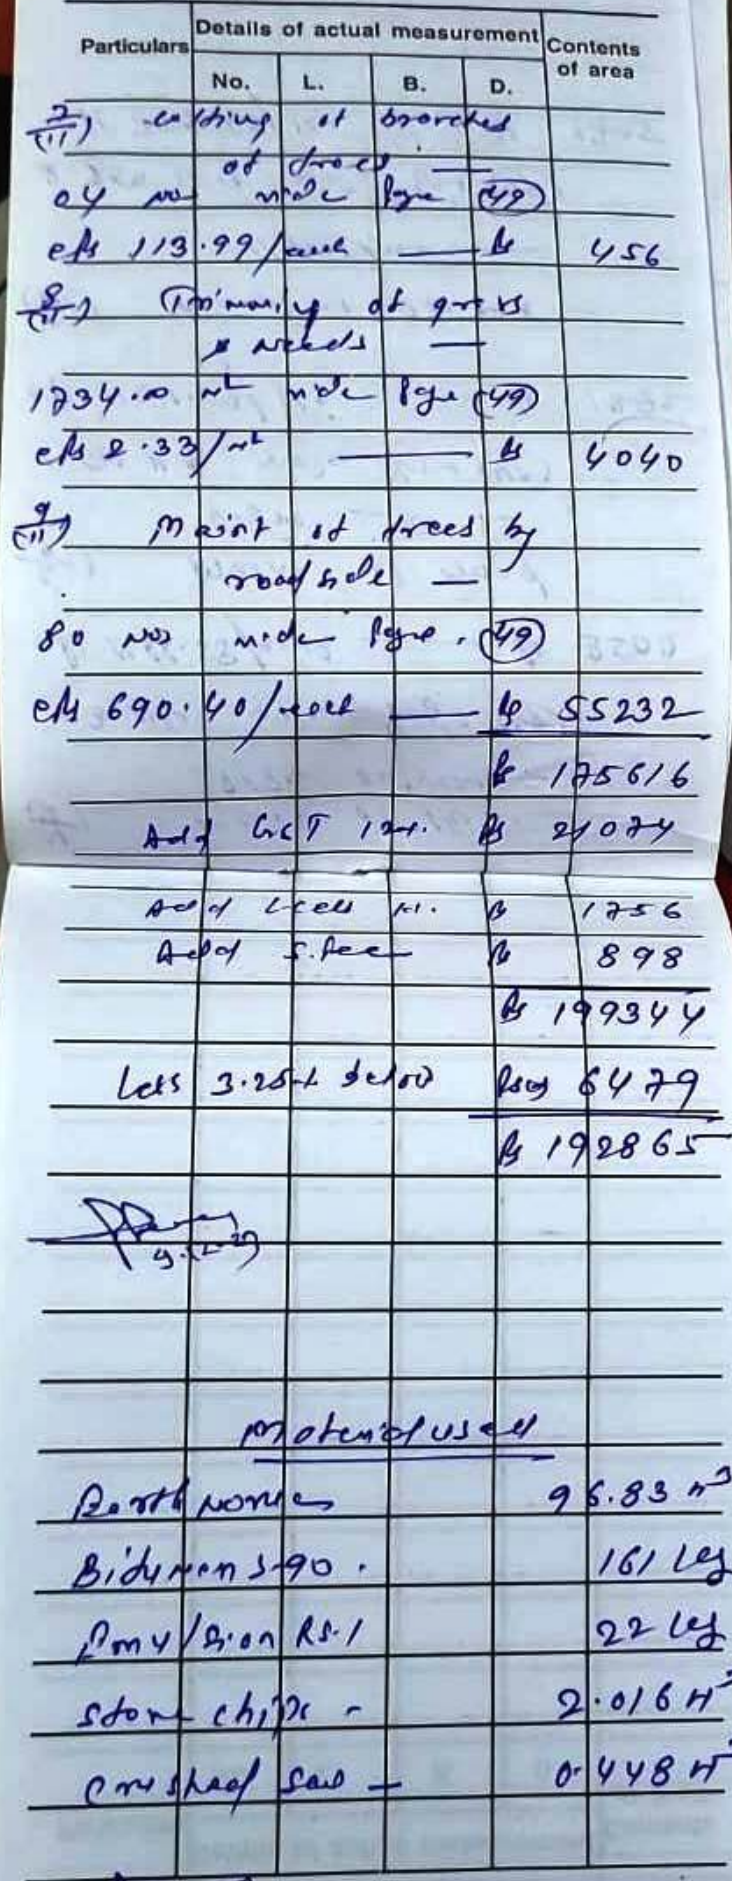 Particulars Details of actual measurement Contents of area
No. L. B. D.
7/(11) cutting of branches
of trees —
04 No vide Page (49)
@Rs 113.99/each — Rs 456
8/(11) Trimming of grass
& weeds —
1734.00 m2 vide Page (49)
@Rs 2.33/m2 — Rs 4040
9/(11) Maint of trees by
road side —
80 Nos vide Page (49)
@Rs 690.40/each — Rs 55232
Rs 175616
Add GST 12%. Rs 21074
Add Lcess 1%. Rs 1756
Add S.fee Rs 898
Rs 199344
Less 3.25% below Rs(-) 6479
Rs 192865
Material used
Earth works 96.83 m3
Bitumen S-90. 161 kg
Emulsion RS.1 22 kg
Stone chips - 2.016 M3
Crushed Sand — 0.448 M3